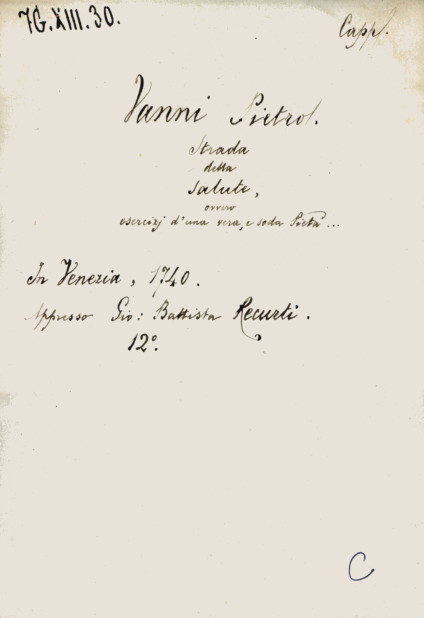 7G.XIII.30.
Capp.
Vanni Pietro.
Strada
della
salute,
ovvero
esercizj d'una vera, e soda Pietà...
In Venezia, 1740.
Appresso Gio: Battista Recurti.
12º.
C